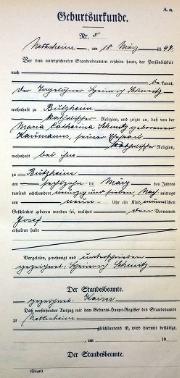 A. a.
Geburtsurkunde.
Nr. 5
Nettesheim, am 18. März 1898.
Vor dem unterzeichneten Standesbeamten erschien heute, der Persönlichkeit
nach
kannt,
der Tagelöhner Heinrich Schmitz
wohnhaft in Butzheim
katholischer Religion, und zeigte an, daß von der
Maria Catharina
seiner Ehefrau
katholischer Religion,
wohnhaft bei ihm
zu Butzheim
am März des Jahres
tausend acht hundert neunzig und acht Nach-
mittags um neun Uhr ein Kind männlichen
Geschlechts geboren worden sei, welches den Vornamen
Josef
erhalten habe
Vorgelesen, genehmigt und unterschrieben
gezeichnet: Heinrich Schmitz
Der Standesbeamte.
gezeichnet:
Daß vorstehender Auszug mit dem Geburts-Haupt-Register des Standesamts
zu Nettesheim
gleichlautend ist, wird hiermit bestätigt.
, am 19
Der Standesbeamte.
(Siegel)